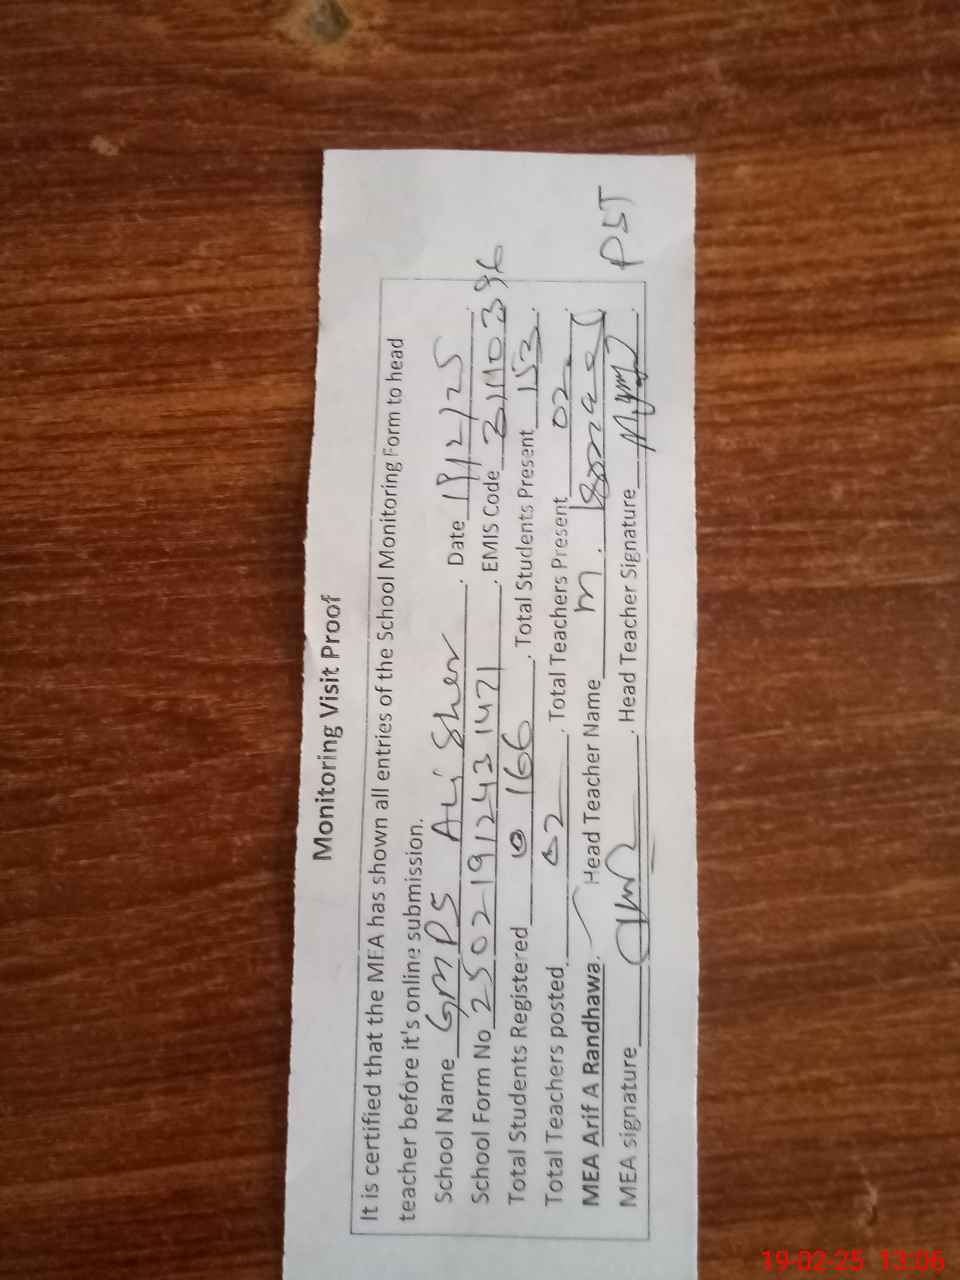 Monitoring Visit Proof
It is certified that the MEA has shown all entries of the School Monitoring Form to head
teacher before it's online submission.
School Name GMPS Ali Sher . Date 19/2/25 .
School Form No 25021912431471 . EMIS Code 31110396
Total Students Registered 166 . Total Students Present 153 .
Total Teachers posted 02 . Total Teachers Present 02 .
MEA Arif A Randhawa. Head Teacher Name M.
MEA signature . Head Teacher Signature .
PST
19-02-25 13:06